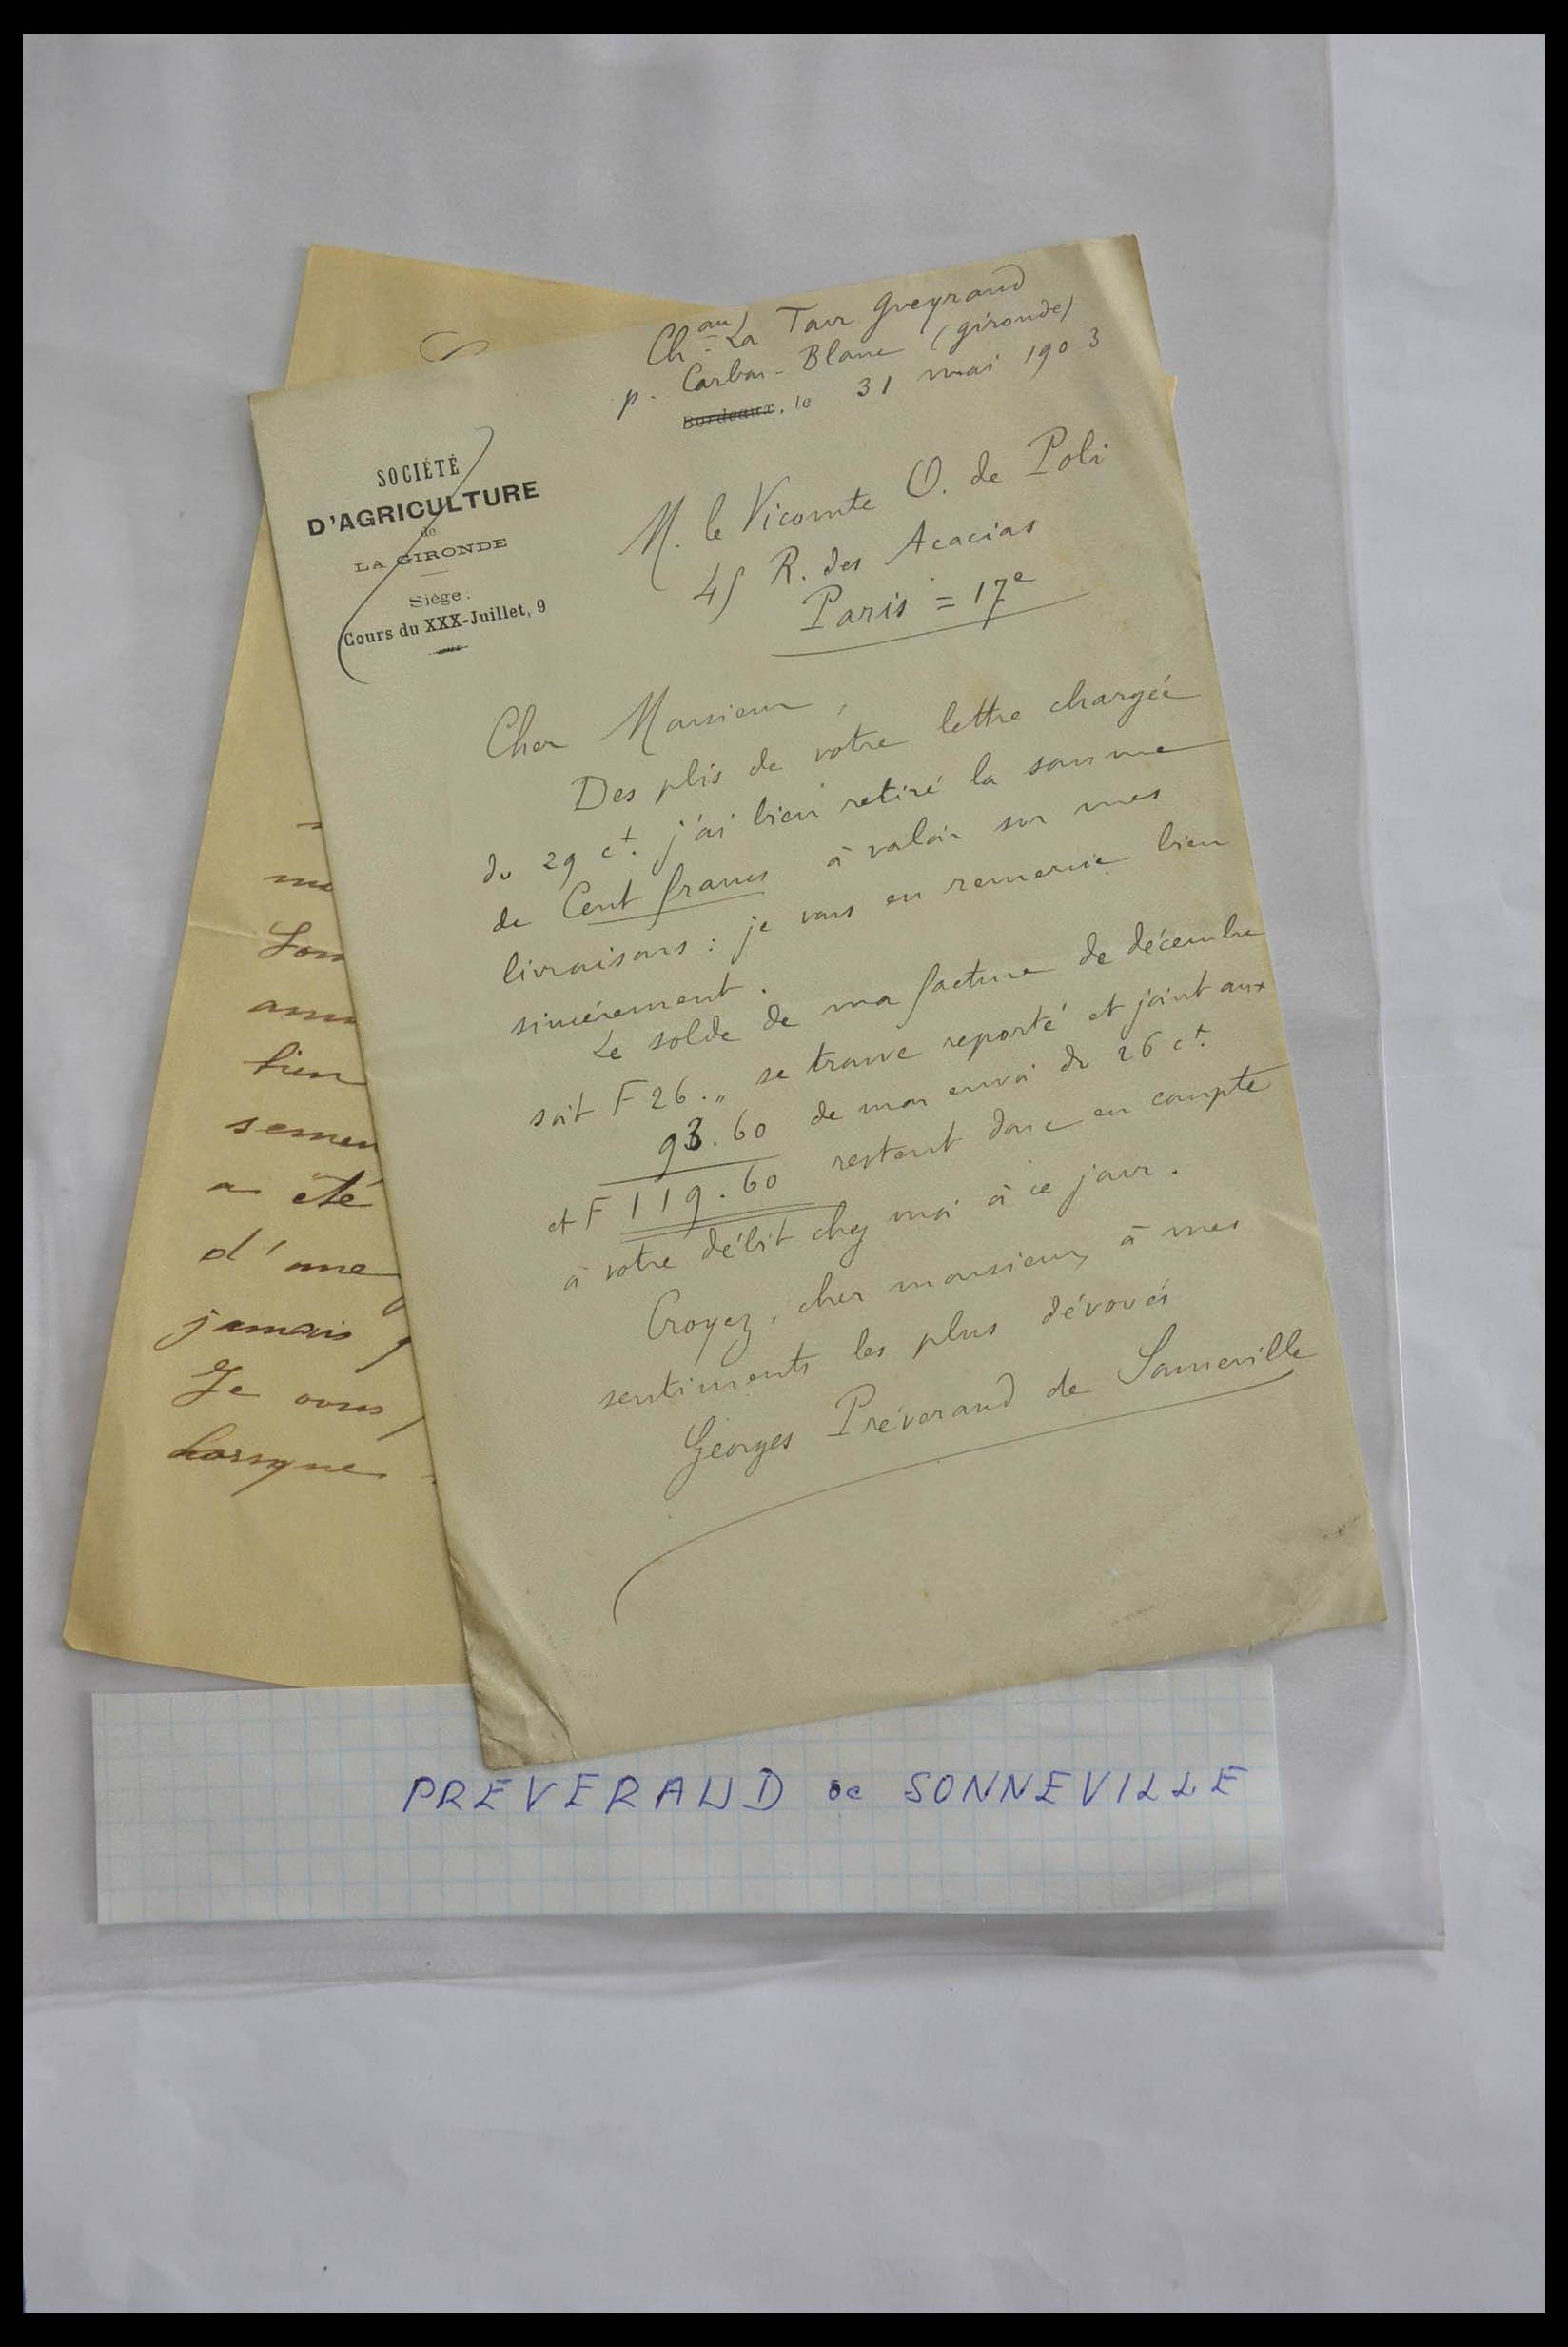 Ch.au La Tour Gueyraud
p. Carbon-Blanc (Gironde)
Bordeaux, le 31 mai 1903
SOCIÉTÉ
D'AGRICULTURE
de
LA GIRONDE
Siège:
Cours du XXX-Juillet, 9
M. le Vicomte O. de Poli
45 R. des Acacias
Paris = 17e
Cher Monsieur,
Des plis de votre lettre chargée
du 29 ct. j'ai bien retiré la somme
de Cent francs à valoir sur mes
livraisons : je vous en remercie bien
sincérement.
Le solde de ma facture de décembre
soit F 26.,, se trouve reporté et joint aux
93.60 de mon envoi du 26 ct.
et F 119.60 restent donc en compte
à votre débit chez moi à ce jour.
Croyez, cher monsieur, à mes
sentiments les plus dévoués
Georges Préveraud de Sonneville
Son
bien
semen
a été
d'une
jamais
Je vous
lorsque
PREVERAUD de SONNEVILLE